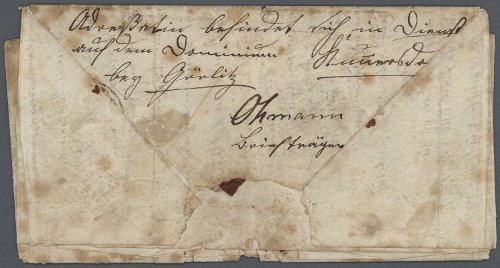 Adressatin befindet sich in Dienst
auf dem Dominium
bey Görlitz
Ohmann
Briefträger